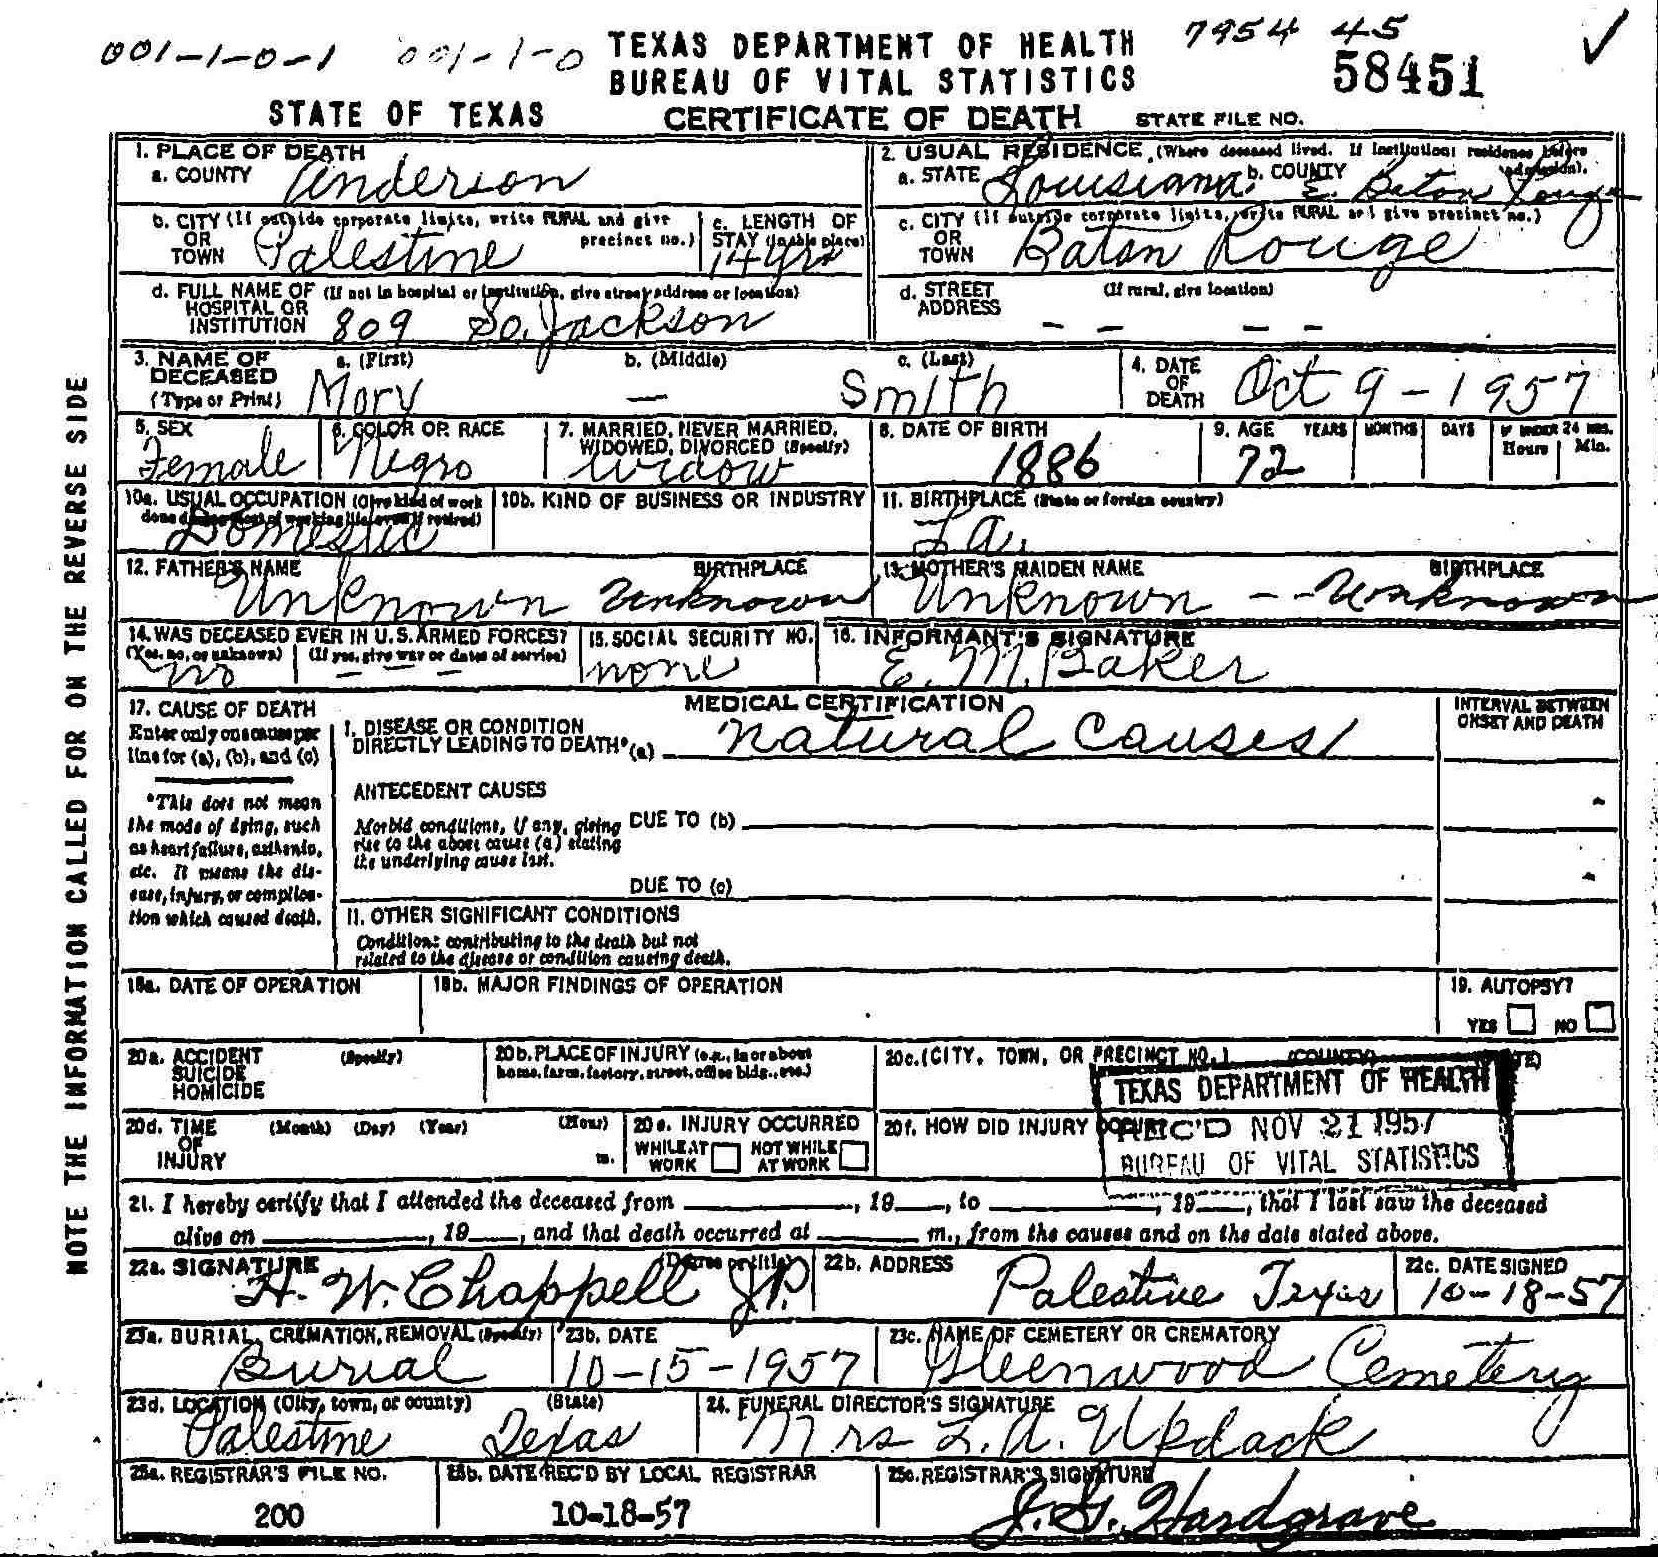 001-1-0-1 001-1-0 TEXAS DEPARTMENT OF HEALTH 7954 45
BUREAU OF VITAL STATISTICS 58451
STATE OF TEXAS CERTIFICATE OF DEATH STATE FILE NO.
1. PLACE OF DEATH
a. COUNTY Anderson
2. USUAL RESIDENCE (Where deceased lived. If institution: residence before admission).
a. STATE Louisiana b. COUNTY E. Baton Rouge
b. CITY (If outside corporate limits, write RURAL and give precinct no.)
OR
TOWN Palestine
c. LENGTH OF
STAY (in this place)
14 yrs
c. CITY (If outside corporate limits, write RURAL and give precinct no.)
OR
TOWN Baton Rouge
d. FULL NAME OF (If not in hospital or institution, give street address or location)
HOSPITAL OR
INSTITUTION 809 So. Jackson
d. STREET (If rural, give location)
ADDRESS - - - -
3. NAME OF DECEASED (Type or Print)
a. (First) b. (Middle) c. (Last)
Mary — Smith
4. DATE
OF
DEATH Oct 9-1957
5. SEX
Female
6. COLOR OR RACE
Negro
7. MARRIED, NEVER MARRIED,
WIDOWED, DIVORCED (Specify)
Widow
8. DATE OF BIRTH
1886
9. AGE YEARS MONTHS DAYS IF UNDER 24 HRS.
Hours Min.
72
10a. USUAL OCCUPATION (Give kind of work
done during most of working life, even if retired)
Domestic
10b. KIND OF BUSINESS OR INDUSTRY
11. BIRTHPLACE (State or foreign country)
La.
12. FATHER'S NAME BIRTHPLACE
Unknown Unknown
13. MOTHER'S MAIDEN NAME BIRTHPLACE
Unknown -- Unknown
14. WAS DECEASED EVER IN U.S. ARMED FORCES?
(Yes, no, or unknown) (If yes, give war or dates of service)
No - - -
15. SOCIAL SECURITY NO.
none
16. INFORMANT'S SIGNATURE
E. M. Baker
MEDICAL CERTIFICATION
INTERVAL BETWEEN
ONSET AND DEATH
17. CAUSE OF DEATH
Enter only one cause per
line for (a), (b), and (c)
*This does not mean
the mode of dying, such
as heart failure, asthenia,
etc. It means the dis-
ease, injury, or complica-
tion which caused death.
I. DISEASE OR CONDITION
DIRECTLY LEADING TO DEATH* (a) Natural Causes
ANTECEDENT CAUSES
Morbid conditions, if any, giving DUE TO (b)
rise to the above cause (a) stating
the underlying cause last.
DUE TO (c)
II. OTHER SIGNIFICANT CONDITIONS
Conditions contributing to the death but not
related to the disease or condition causing death.
18a. DATE OF OPERATION
18b. MAJOR FINDINGS OF OPERATION
19. AUTOPSY?
YES NO
20a. ACCIDENT (Specify)
SUICIDE
HOMICIDE
20b. PLACE OF INJURY (e.g., in or about
home, farm, factory, street, office bldg., etc.)
20c. (CITY, TOWN, OR PRECINCT NO.) (COUNTY) (STATE)
TEXAS DEPARTMENT OF HEALTH
REC'D NOV 21 1957
BUREAU OF VITAL STATISTICS
20d. TIME (Month) (Day) (Year) (Hour)
OF
INJURY m.
20e. INJURY OCCURRED
WHILE AT WORK NOT WHILE AT WORK
20f. HOW DID INJURY OCCUR?
21. I hereby certify that I attended the deceased from , 19 , to , 19 , that I last saw the deceased
alive on , 19 , and that death occurred at m., from the causes and on the date stated above.
22a. SIGNATURE (Degree or title)
H. W. Chappell J.P.
22b. ADDRESS
Palestine Texas
22c. DATE SIGNED
10-18-57
23a. BURIAL, CREMATION, REMOVAL (Specify)
Burial
23b. DATE
10-15-1957
23c. NAME OF CEMETERY OR CREMATORY
Gleenwood Cemetery
23d. LOCATION (City, town, or county) (State)
Palestine Texas
24. FUNERAL DIRECTOR'S SIGNATURE
Mrs L. A. Updack
25a. REGISTRAR'S FILE NO.
200
25b. DATE REC'D BY LOCAL REGISTRAR
10-18-57
25c. REGISTRAR'S SIGNATURE
J. G. Hardgrave
NOTE THE INFORMATION CALLED FOR ON THE REVERSE SIDE